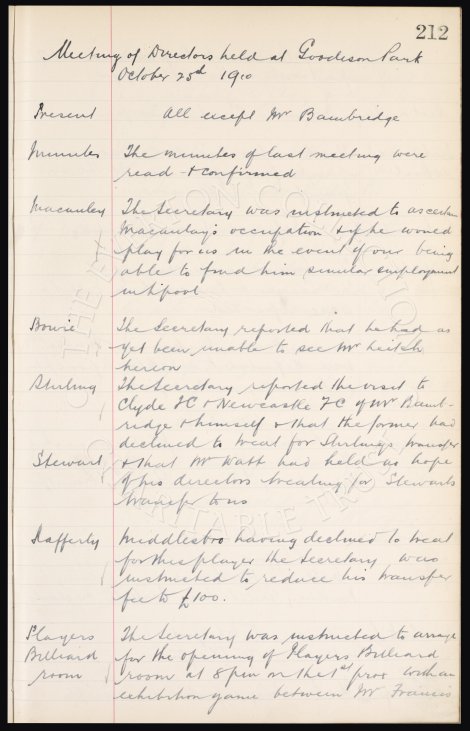 212
Meeting of Directors held at Goodison Park
October 25d 1910
Present All except Mr Bainbridge
Minutes The minutes of last meeting were
read & confirmed
Macauley The Secretary was instructed to ascertain
Macaulay's occupation & if he would
play for us in the event of our being
able to find him similar employment
in Lipool
Bowie The Secretary reported that he had as
yet been unable to see Mr Leitch
hereon
Stirling The Secretary reported the visit to
Clyde FC & Newcastle FC of Mr Bainb-
ridge & himself & that the former had
declined to treat for Stirling's transfer
Stewart & that Mr Watt had held no hope
of his directors treating for Stewarts
transfer to us
Rafferty Middlesbro having declined to treat
for this player the Secretary was
instructed to reduce his transfer
fee to £100.
Players The Secretary was instructed to arrange
Billiard for the opening of Players Billiard
room room at 8pm on the 1st prox with an
exhibition game between Mr Francis